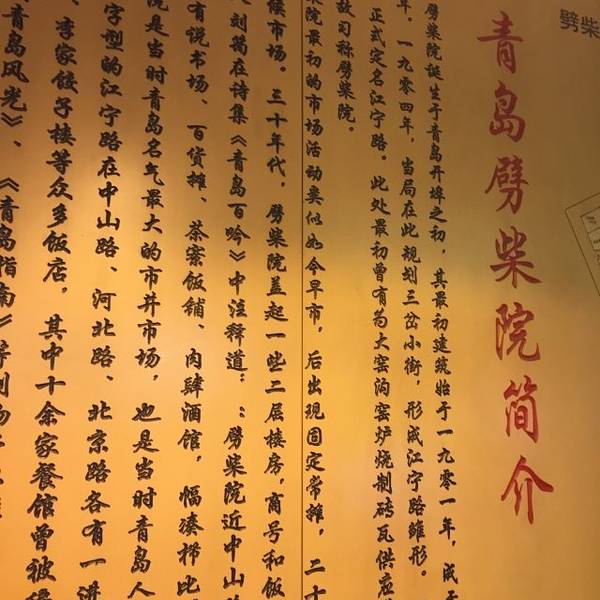 劈柴
青岛劈柴院简介
劈柴院诞生于青岛开埠之初，其最初建筑始于一九零一年，成
年。一九零四年，当局在此规划三岔小街，形成江宁路雏形。
正式定名江宁路。此处最初曾有为大窑沟窑炉烧制砖瓦供应
故习称劈柴院。
柴院最初的市场活动类似如今早市，后出现固定常摊，二十
候市场。三十年代，劈柴院盖起一些二层楼房，商号和饭
人刘筠在诗集《青岛百吟》中注释道：：劈柴院近中山
有说书场、百货摊、茶寮饭铺、肉肆酒馆，幅凑栉比
院是当时青岛名气最大的市井市场，也是当时青岛人
字型的江宁路在中山路、河北路、北京路各有一进
、李家饺子楼等众多饭店，其中十余家餐馆曾被
青岛风光》、《青岛指南》等刊物